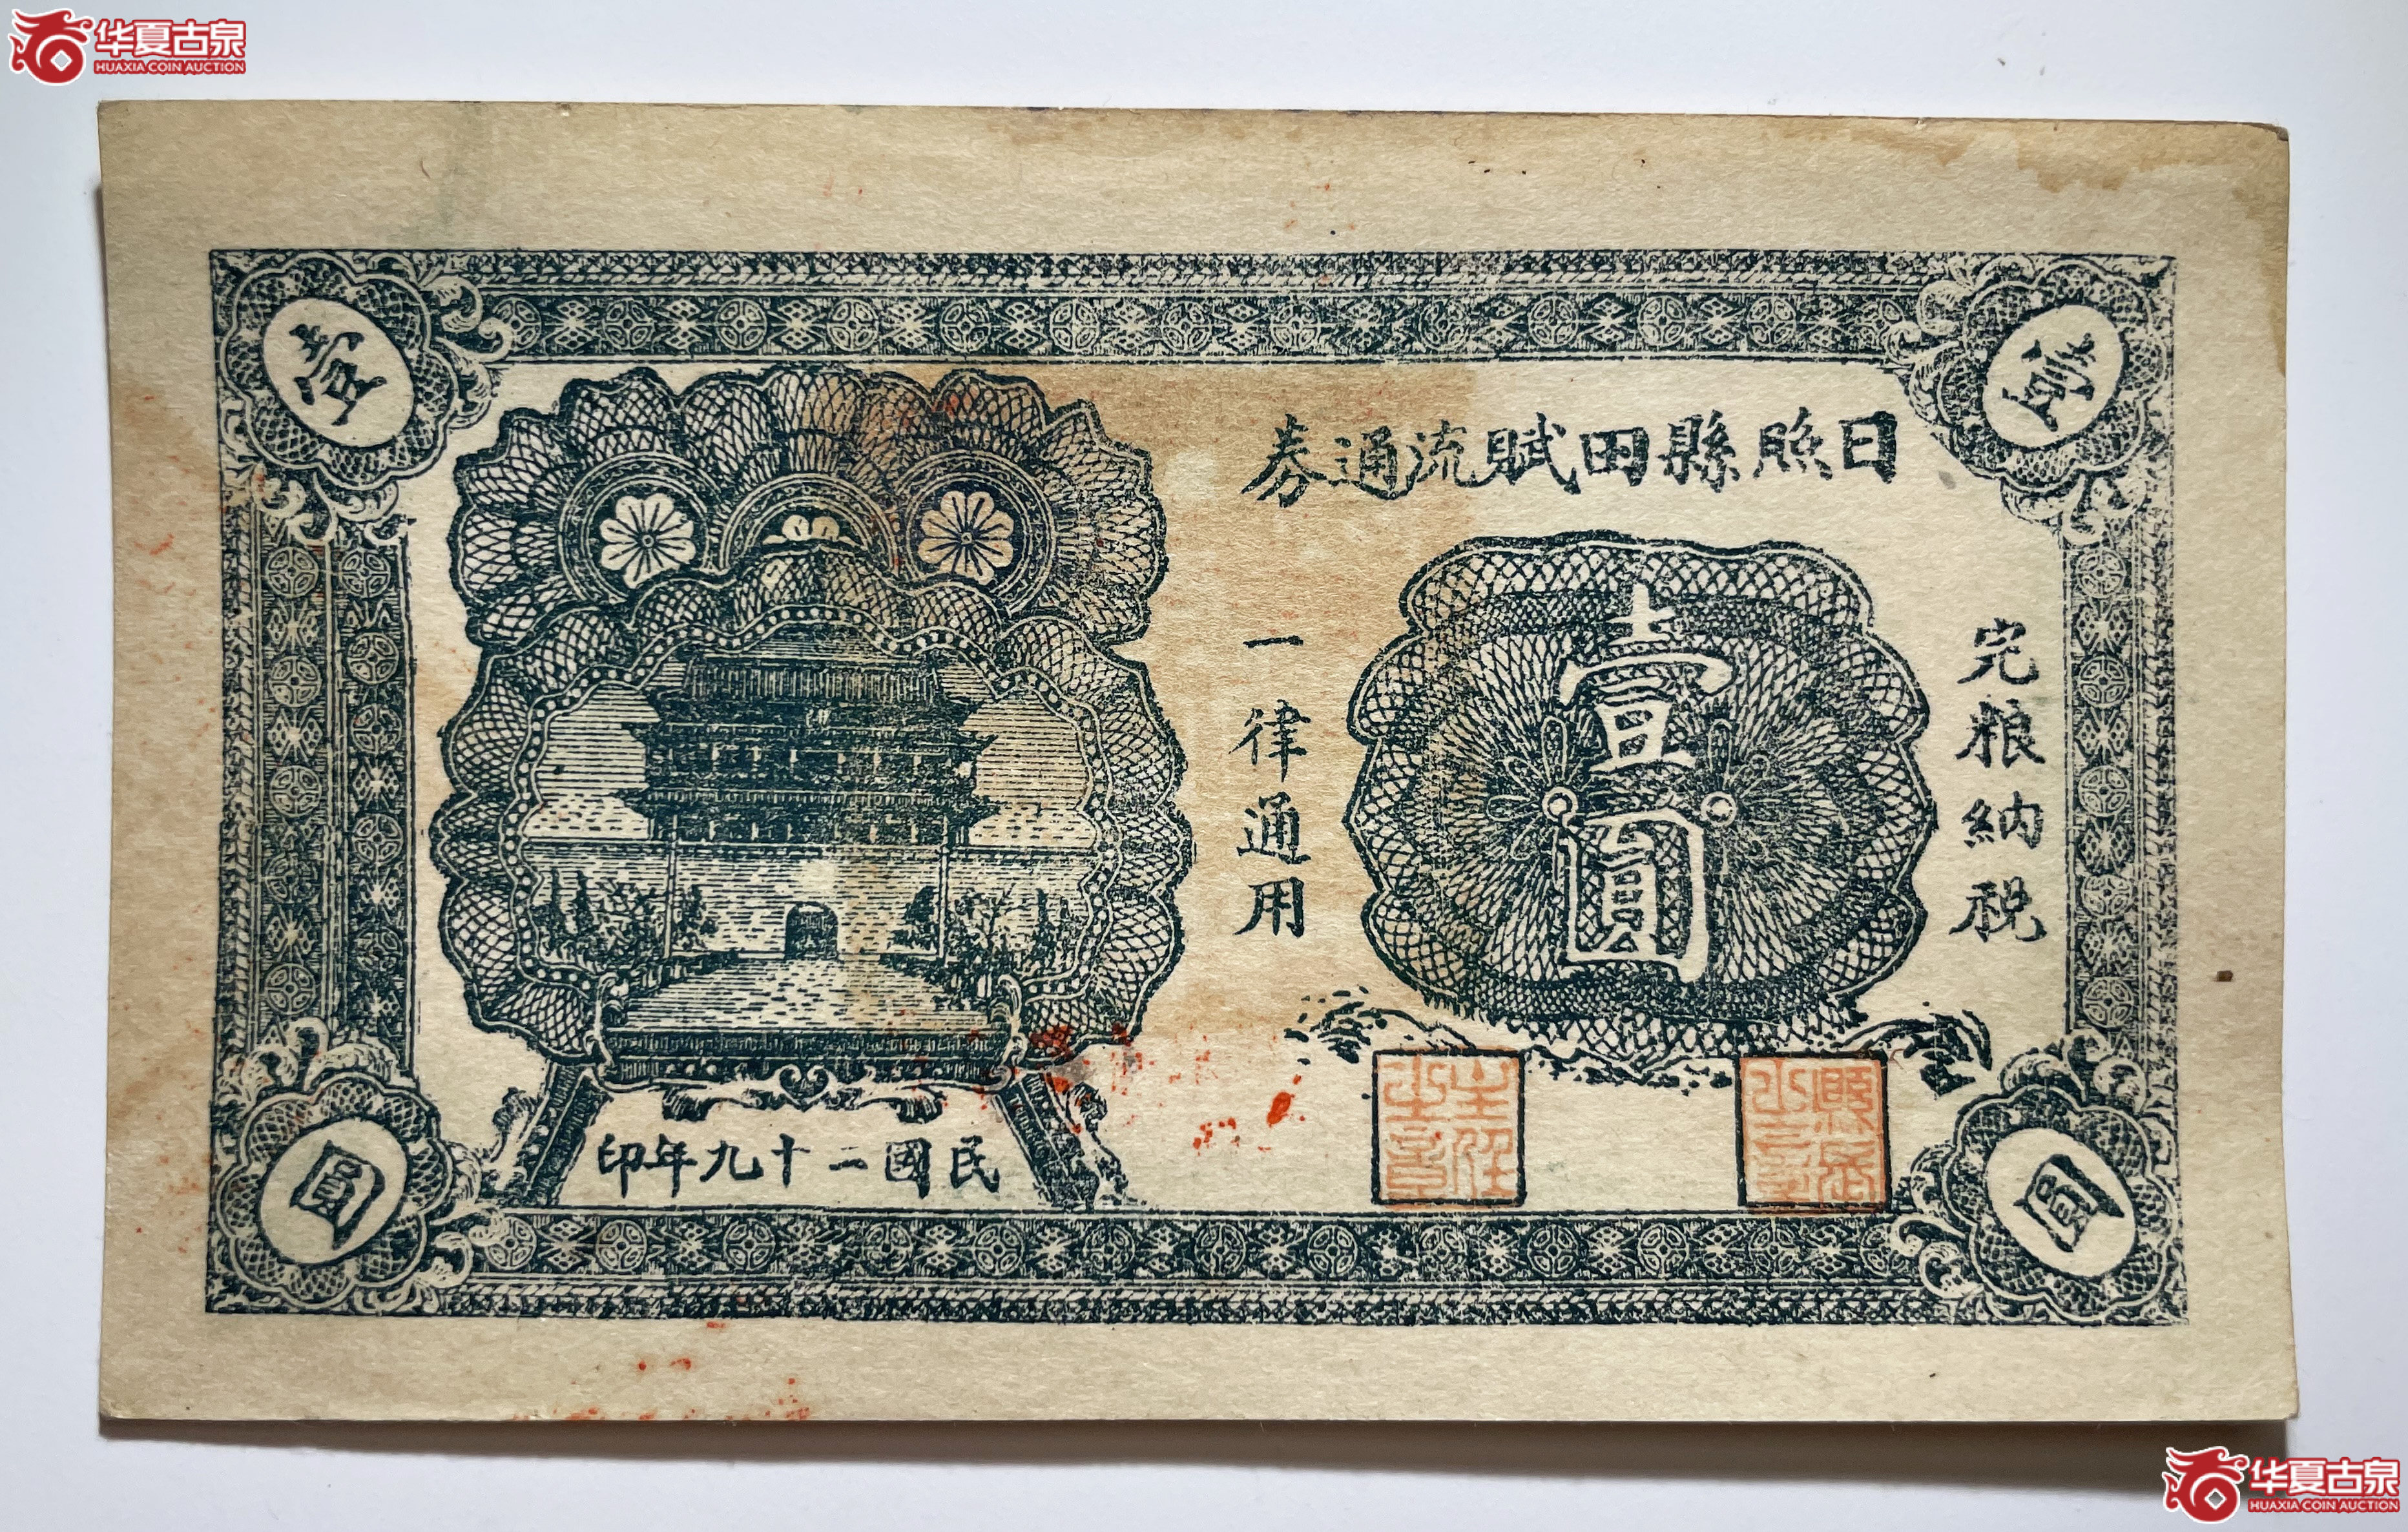 华夏古泉
HUAXIA COIN AUCTION
壹
壹
日照縣田賦流通券
完粮納税
壹圓
一律通用
主任之章
縣長之章
民國二十九年印
圓
圓
华夏古泉
HUAXIA COIN AUCTION